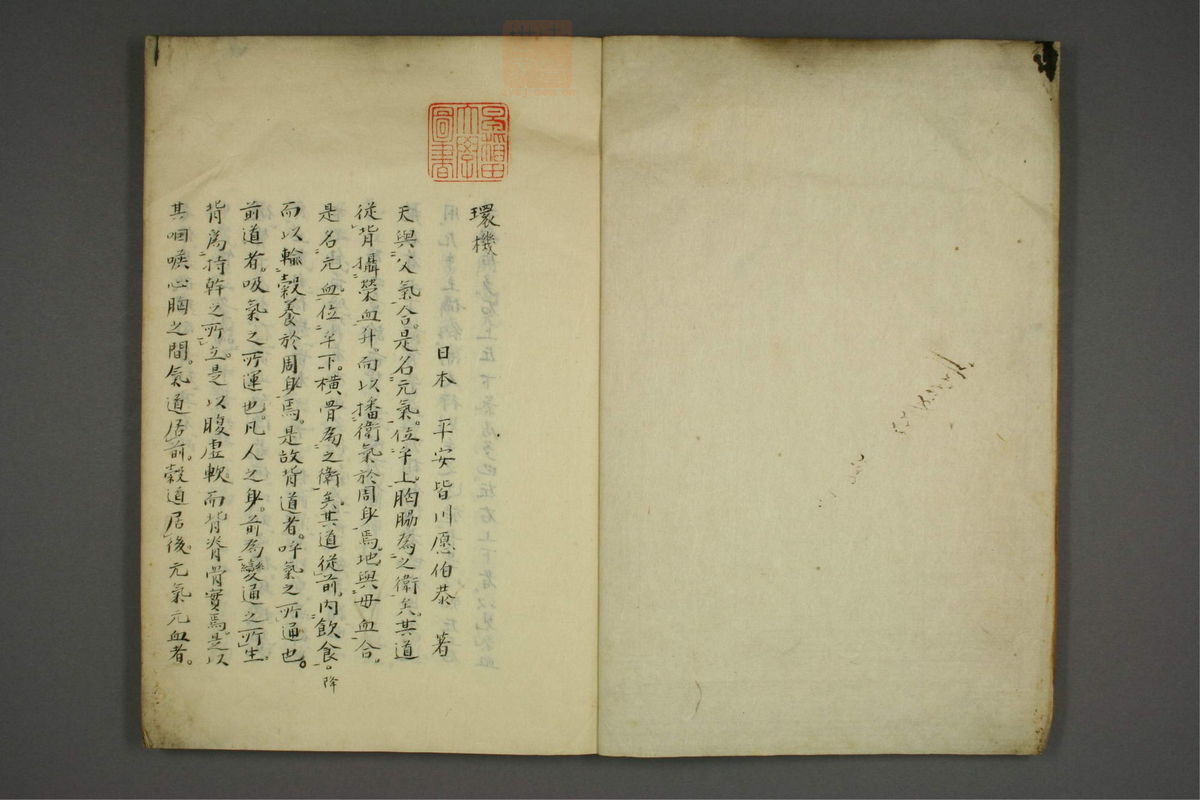 環機
日本 平安 皆川愿伯恭 著
天與父氣合。是名元氣。位乎上。胸腸為之衛矣。其道
従背攝榮血升。而以播衛氣於周身焉。地與毋血合。
是名元血。位乎下。横骨為之衛矣。其道従前。内飲食。降
而以輸穀養於周身焉。是故背道者。呼氣之所通也。
前道者。吸氣之所運也。凡人之身。前為變通之所生。
背為持幹之所立。是以腹虚軟。而背脊骨實焉。是以
其咽喉心胸之間。氣道居前。穀道居後。元氣元血者。
早稲田
大學
圖書